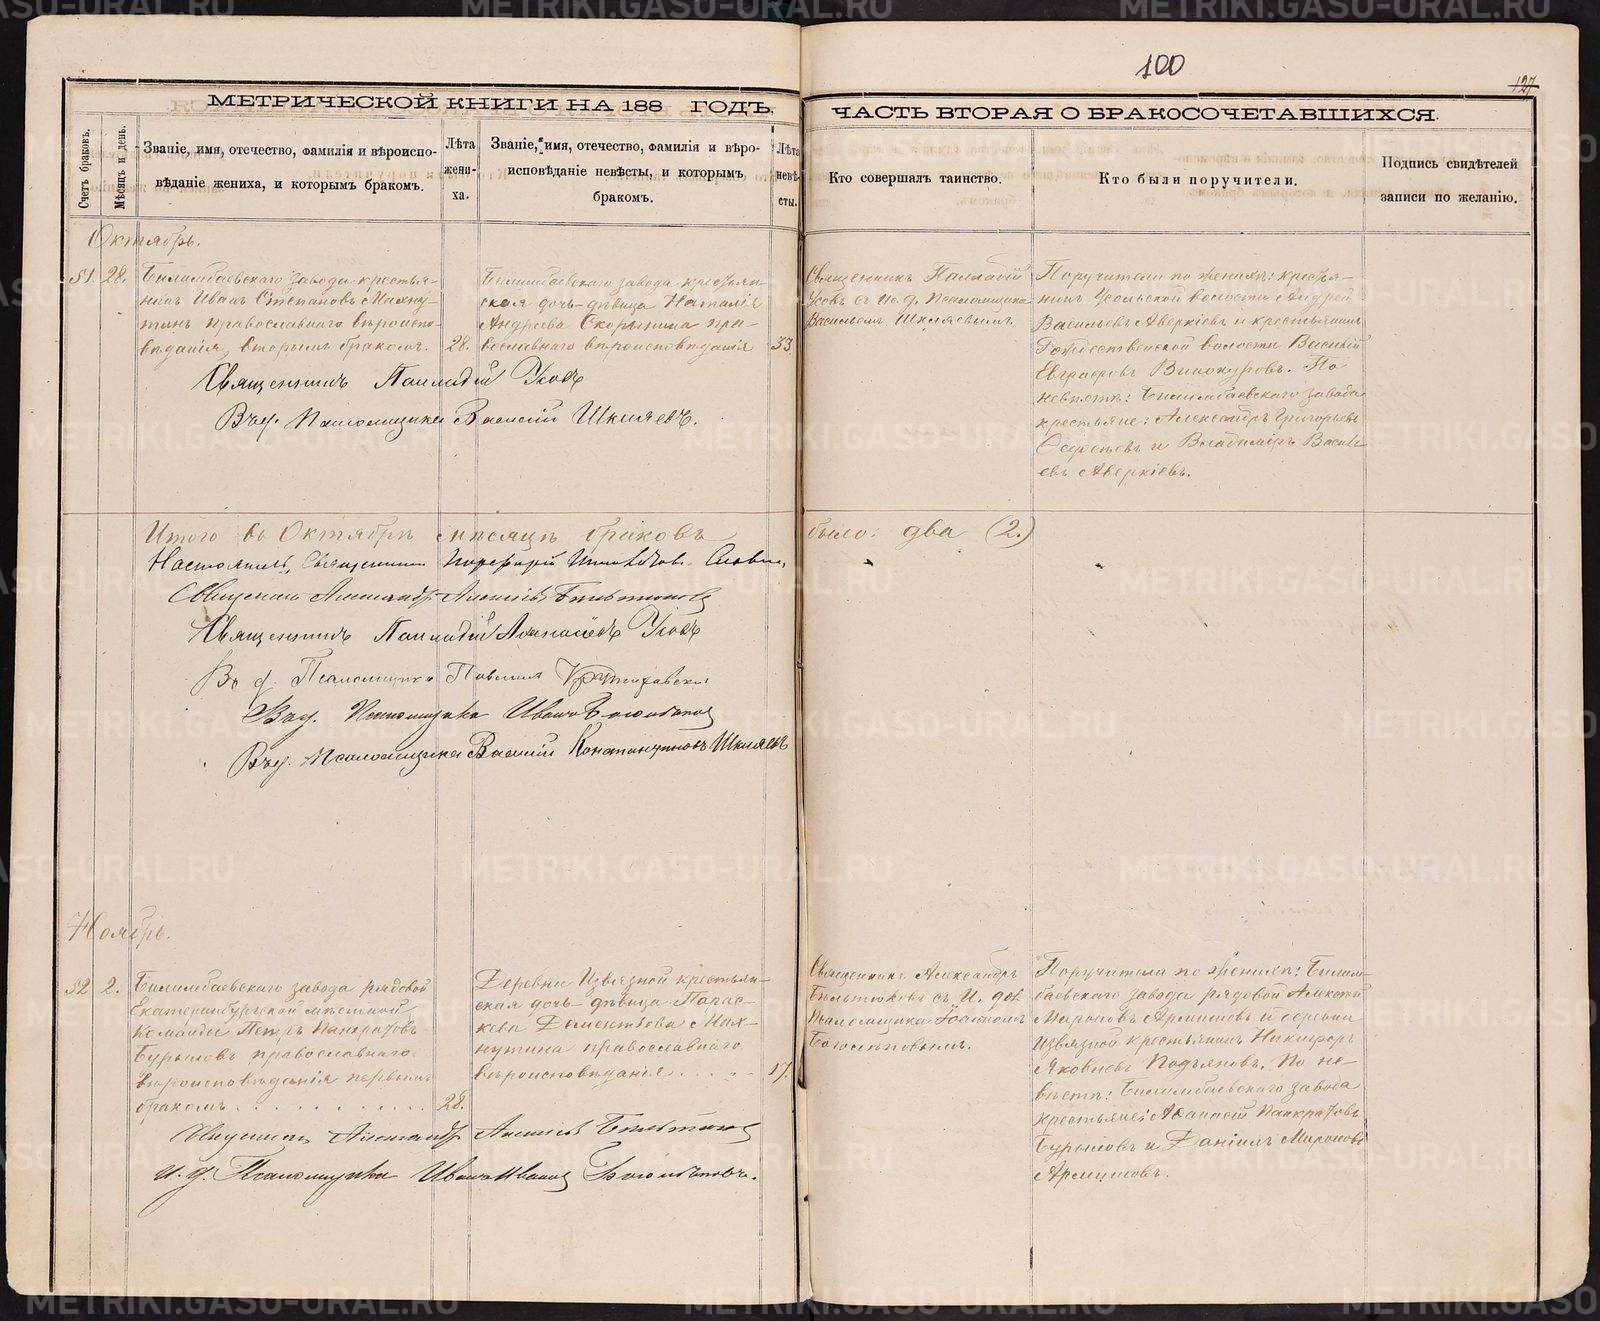 100
127
МЕТРИЧЕСКОЙ КНИГИ НА 188 ГОДЪ.
ЧАСТЬ ВТОРАЯ О БРАКОСОЧЕТАВШИХСЯ.
Счетъ браковъ.
Мѣсяцъ и день.
Званіе, имя, отечество, фамилія и вѣроиспо-
вѣданіе жениха, и которымъ бракомъ.
Лѣта
жени-
ха.
Званіе, имя, отечество, фамилія и вѣро-
исповѣданіе невѣсты, и которымъ
бракомъ.
Лѣта
невѣ-
сты.
Кто совершалъ таинство.
Кто были поручители.
Подпись свидѣтелей
записи по желанію.
Октябрь.
51. 28.
Билимбаевскаго завода крестья-
нинъ Иванъ Степановъ Махну-
тинъ православнаго вѣроиспо-
вѣданія, вторымъ бракомъ.
28.
Билимбаевскаго завода крестьян-
ская дочь-дѣвица Наталія
Андреева Скорынина пра-
вославнаго вѣроисповѣданія
33.
Священникъ Палладій
Усовъ съ И. д. Псаломщика
Васильемъ Шкляевымъ.
Поручители по женихѣ: кресть-
янинъ Усольской волости Андрей
Васильевъ Аверкіевъ и крестьянинъ
Рождественской волости Василій
Евграфовъ Винокуровъ. По
невѣстѣ: Билимбаевскаго завода
крестьяне: Александръ Григорьевъ
и Владиміръ Василь-
евъ Аверкіевъ.
Священникъ Палладій Усовъ
В. д. Псаломщика Василій Шкляевъ.
Итого въ Октябрѣ мѣсяцѣ браковъ
было: два (2.)
Настоятель, Священникъ Порфирій
Священникъ Александръ Алексѣевъ Бильтюковъ
Священникъ Палладій Аѳанасіевъ Усовъ
В. д. Псаломщика Павелъ
В. д. Псаломщика Иванъ Богословскій
В. д. Псаломщика Василій Константиновъ Шкляевъ
Ноябрь.
52 2.
Билимбаевскаго завода рядовой
Екатеринбургской мѣстной
команды Петръ Панкратовъ
Бурыловъ православнаго
вѣроисповѣданія первымъ
бракомъ
28.
Деревни Извязной крестьян-
ская дочь-дѣвица Парас-
кева Дементьева Мах-
нутина православнаго
вѣроисповѣданія
17.
Священникъ Александръ
Бильтюковъ съ И. дол.
Псаломщика Іоанномъ
Поручители по женихѣ: Билим-
баевскаго завода рядовой Алексѣй
Мироновъ и деревни
Извязной крестьянинъ Никифоръ
Яковлевъ По не-
вѣстѣ: Билимбаевскаго завода
крестьяне: Аѳанасій Панкратовъ
Бурыловъ и Даніилъ Мироновъ
Священникъ Александръ Алексѣевъ Бильтюковъ
И. д. Псаломщика Иванъ Ивановъ
METRIKI.GASO-URAL.RU